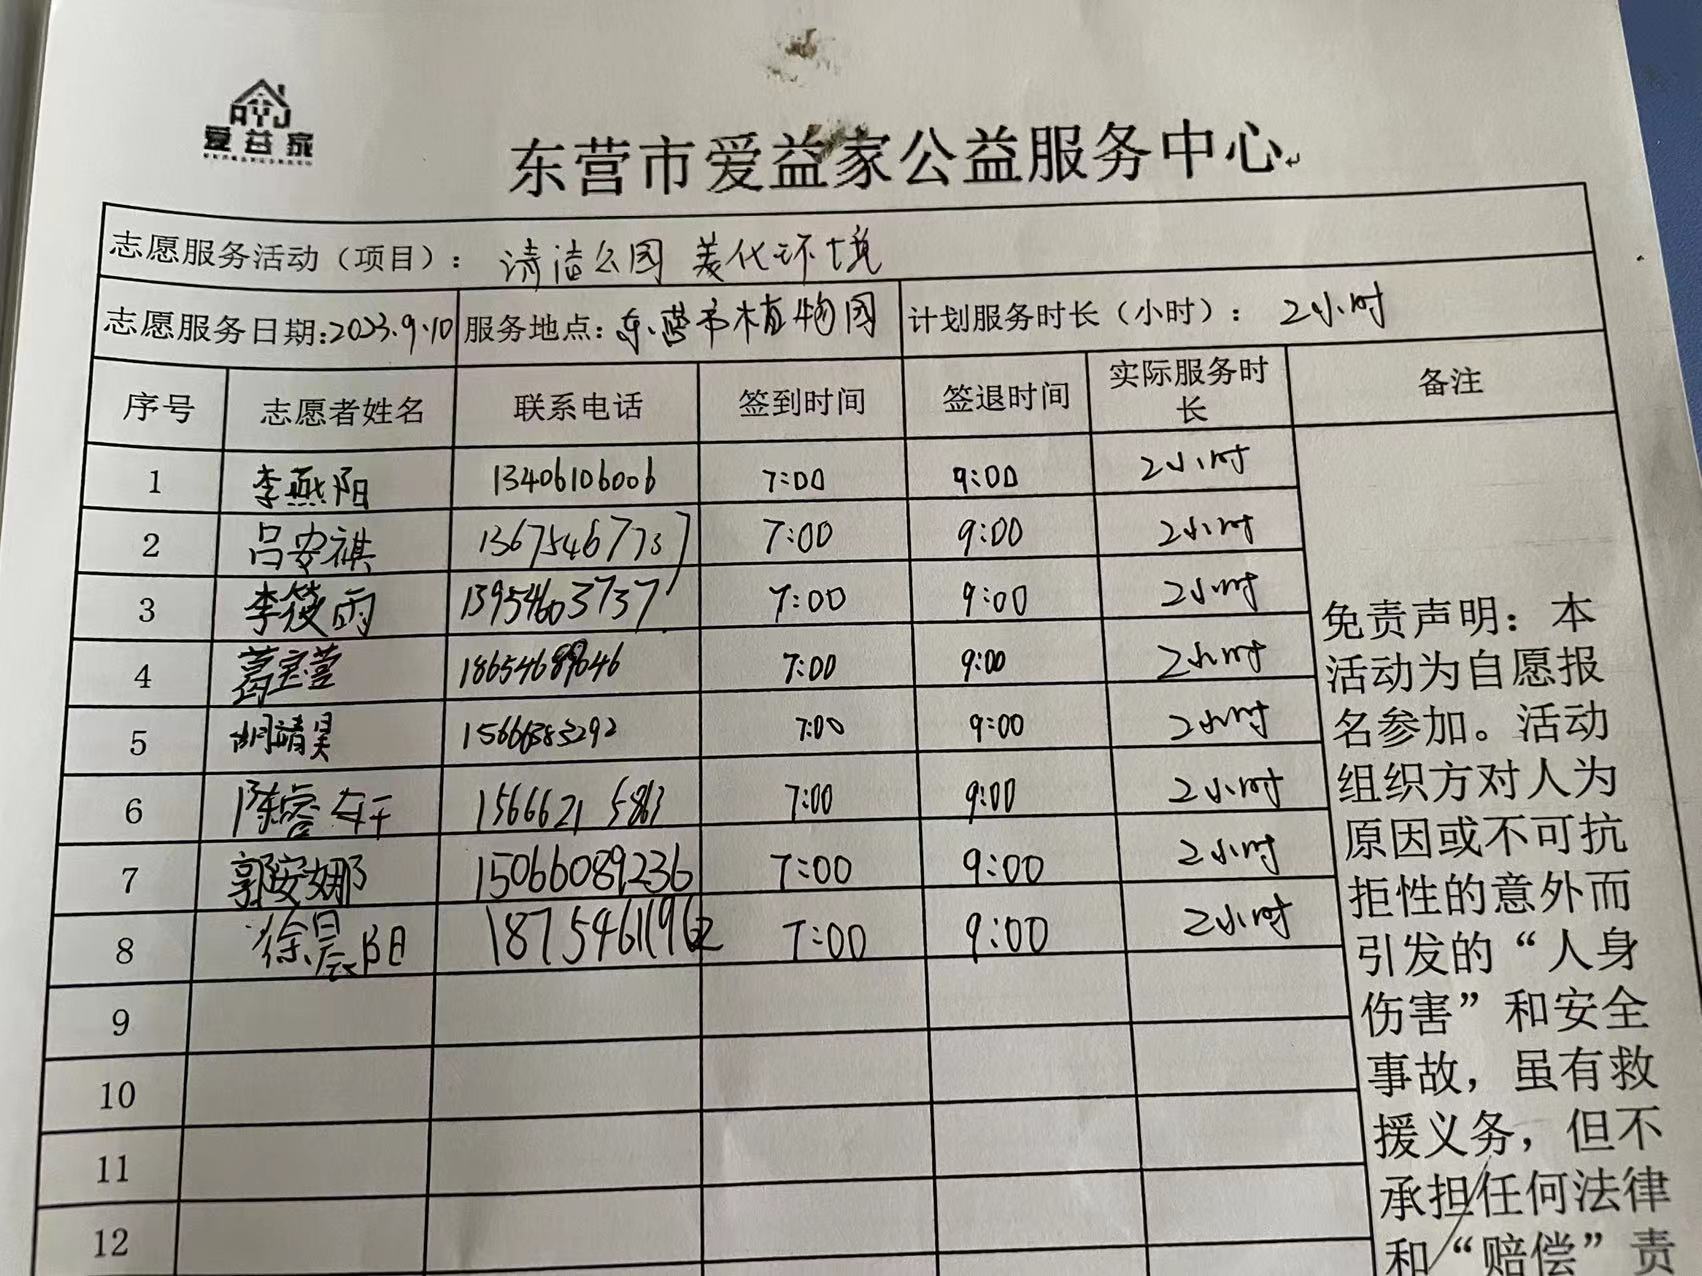 爱益家
东营市爱益家公益服务中心
志愿服务活动（项目）： 清洁公园 美化环境
志愿服务日期:2023.9.10 服务地点: 东营市植物园 计划服务时长（小时）： 2小时
序号 志愿者姓名 联系电话 签到时间 签退时间 实际服务时长 备注
1 李燕阳 13406106006 7:00 9:00 2小时
2 吕安祺 13675467737 7:00 9:00 2小时
3 李筱雨 13954603737 7:00 9:00 2小时
4 葛宝莹 7:00 9:00 2小时
5 胡靖昊 7:00 9:00 2小时
6 陈睿轩 15666215863 7:00 9:00 2小时
7 郭安娜 15066089236 7:00 9:00 2小时
8 徐晨阳 18754611962 7:00 9:00 2小时
9
10
11
12
免责声明：本
活动为自愿报
名参加。活动
组织方对人为
原因或不可抗
拒性的意外而
引发的“人身
伤害”和安全
事故，虽有救
援义务，但不
承担任何法律
和“赔偿”责